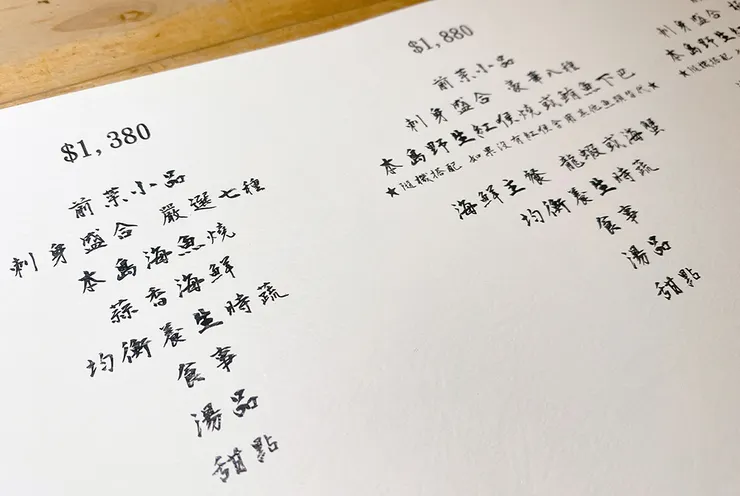 $1,380
前菜小品
刺身盛合 嚴選七種
本島海魚燒
蒜香海鮮
均衡養生時蔬
食事
湯品
甜點
$1,880
前菜小品
刺身盛合 豪華八種
本島野生紅喉燒或鮪魚下巴
★隨機搭配 如果沒有紅喉會用其他魚類替代★
海鮮主餐 龍蝦或海蟹
均衡養生時蔬
食事
湯品
甜點
刺身盛合
本島野生紅
★隨機搭配